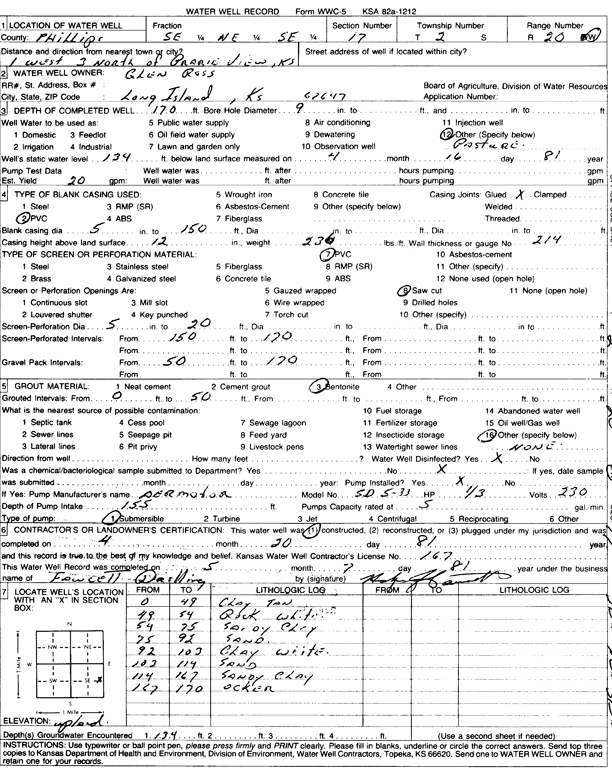 WATER WELL RECORD Form WWC-5 KSA 82a-1212
1 LOCATION OF WATER WELL Fraction Section Number Township Number Range Number
County: Phillips SE ¼ NE ¼ SE ¼ 17 T 2 S R 20 W
Distance and direction from nearest town or city? Street address of well if located within city?
1 West 3 North of Prairie View, KS
2 WATER WELL OWNER: Glen Ross
RR#, St. Address, Box # Board of Agriculture, Division of Water Resources
City, State, ZIP Code Long Island, KS 67647 Application Number:
3 DEPTH OF COMPLETED WELL 170 ft. Bore Hole Diameter 9 in. to ft., and in. to ft.
Well Water to be used as: 5 Public water supply 8 Air conditioning 11 Injection well
1 Domestic 3 Feedlot 6 Oil field water supply 9 Dewatering 12 Other (Specify below)
2 Irrigation 4 Industrial 7 Lawn and garden only 10 Observation well Pasture
Well's static water level 134 ft. below land surface measured on 4 month 16 day 81 year
Pump Test Data Well water was ft. after hours pumping gpm
Est. Yield 20 gpm: Well water was ft. after hours pumping gpm
4 TYPE OF BLANK CASING USED: 5 Wrought iron 8 Concrete tile Casing Joints: Glued X Clamped
1 Steel 3 RMP (SR) 6 Asbestos-Cement 9 Other (specify below) Welded
2 PVC 4 ABS 7 Fiberglass Threaded
Blank casing dia 5 in. to 150 ft., Dia in. to ft., Dia in. to ft.
Casing height above land surface 12 in., weight 236 lbs./ft. Wall thickness or gauge No 214
TYPE OF SCREEN OR PERFORATION MATERIAL: 7 PVC 10 Asbestos-cement
1 Steel 3 Stainless steel 5 Fiberglass 8 RMP (SR) 11 Other (specify)
2 Brass 4 Galvanized steel 6 Concrete tile 9 ABS 12 None used (open hole)
Screen or Perforation Openings Are: 5 Gauzed wrapped 8 Saw cut 11 None (open hole)
1 Continuous slot 3 Mill slot 6 Wire wrapped 9 Drilled holes
2 Louvered shutter 4 Key punched 7 Torch cut 10 Other (specify)
Screen-Perforation Dia 5 in. to 20 ft., Dia in. to ft., Dia in to ft.
Screen-Perforated Intervals: From 150 ft. to 170 ft., From ft. to ft.
From ft. to ft., From ft. to ft.
Gravel Pack Intervals: From 50 ft. to 170 ft., From ft. to ft.
From ft. to ft., From ft. to ft.
5 GROUT MATERIAL: 1 Neat cement 2 Cement grout 3 Bentonite 4 Other
Grouted Intervals: From 0 ft. to 50 ft., From ft. to ft., From ft. to ft.
What is the nearest source of possible contamination: 10 Fuel storage 14 Abandoned water well
1 Septic tank 4 Cess pool 7 Sewage lagoon 11 Fertilizer storage 15 Oil well/Gas well
2 Sewer lines 5 Seepage pit 8 Feed yard 12 Insecticide storage 16 Other (specify below)
3 Lateral lines 6 Pit privy 9 Livestock pens 13 Watertight sewer lines NONE
Direction from well How many feet ? Water Well Disinfected? Yes X No
Was a chemical/bacteriological sample submitted to Department? Yes No X If yes, date sample
was submitted month day year: Pump Installed? Yes X No
If Yes: Pump Manufacturer's name Aermotor Model No. SD5-33 HP 1/3 Volts 230
Depth of Pump Intake 155 ft. Pumps Capacity rated at 5 gal./min.
Type of pump: 1 Submersible 2 Turbine 3 Jet 4 Centrifugal 5 Reciprocating 6 Other
6 CONTRACTOR'S OR LANDOWNER'S CERTIFICATION: This water well was (1) constructed, (2) reconstructed, or (3) plugged under my jurisdiction and was
completed on 4 month 20 day 81 year
and this record is true to the best of my knowledge and belief. Kansas Water Well Contractor's License No. 167
This Water Well Record was completed on 5 month 7 day 81 year under the business
name of Drilling by (signature)
7 LOCATE WELL'S LOCATION WITH AN "X" IN SECTION BOX:
FROM TO LITHOLOGIC LOG FROM TO LITHOLOGIC LOG
0 49 Clay Tan
49 54 Rock White
54 75 Sandy Clay
75 92 Sand
92 103 Clay White
103 114 Sand
114 167 Sandy Clay
167 170 Ocker
N
NW NE
W E
SW SE X
S
1 Mile
1 Mile
ELEVATION: upland
Depth(s) Groundwater Encountered 1. 134 ft. 2 ft. 3 ft. 4 ft. (Use a second sheet if needed)
INSTRUCTIONS: Use typewriter or ball point pen, please press firmly and PRINT clearly. Please fill in blanks, underline or circle the correct answers. Send top three
copies to Kansas Department of Health and Environment, Division of Environment, Water Well Contractors, Topeka, KS 66620. Send one to WATER WELL OWNER and
retain one for your records.